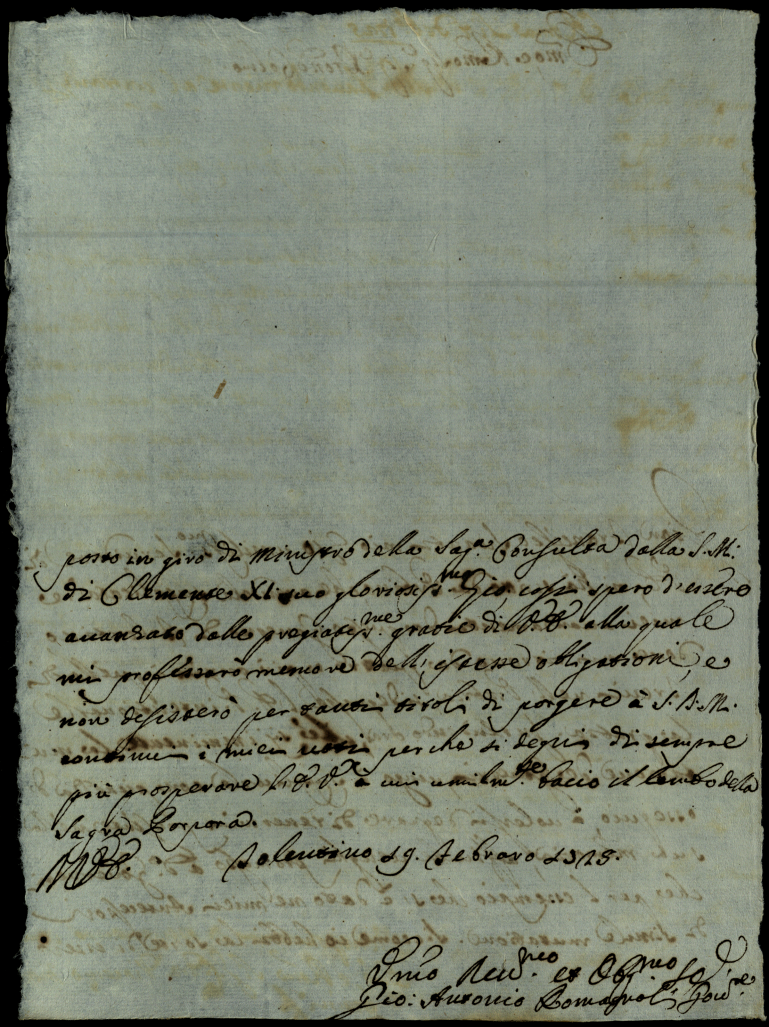 posto in giro di Ministro della Sag.ª Consulta dalla S. M:
di Clemente XI. suo gloriosiss.mo Zio, cossi spero d'essere
avanzato dalle pregiatiss.me gratie di V. E. alla quale
mi professarò memore dell'istesse obligationi, e
non desisterò per tanti titoli di porgere à S. D. M.
continui i miei voti perche si degni di sempre
più prosperare l'E. V.ª à cui umilm.te bacio il lembo della
Sagra Porpora.
Tolentino 19. Febraro
Gio: Antonio Romagnoli Gov.re